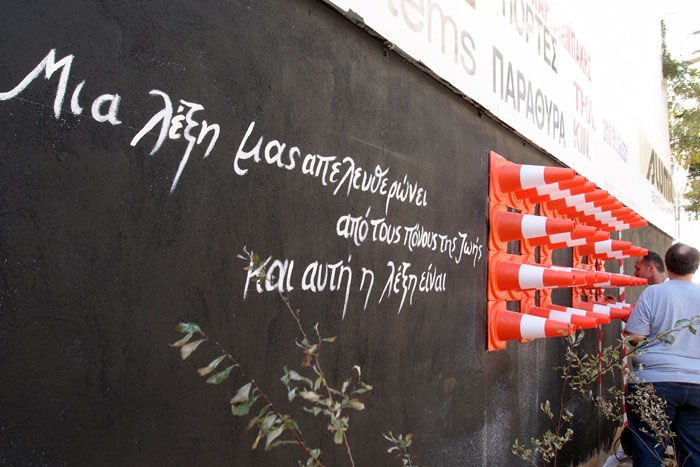 tems
ΠΟΡΤΕΣ
ΠΑΡΑΘΥΡΑ
ΤΗΛ.
ΚΙΝ
Μια λέξη μας απελευθερώνει
από τους πόνους της ζωής
και αυτή η λέξη είναι